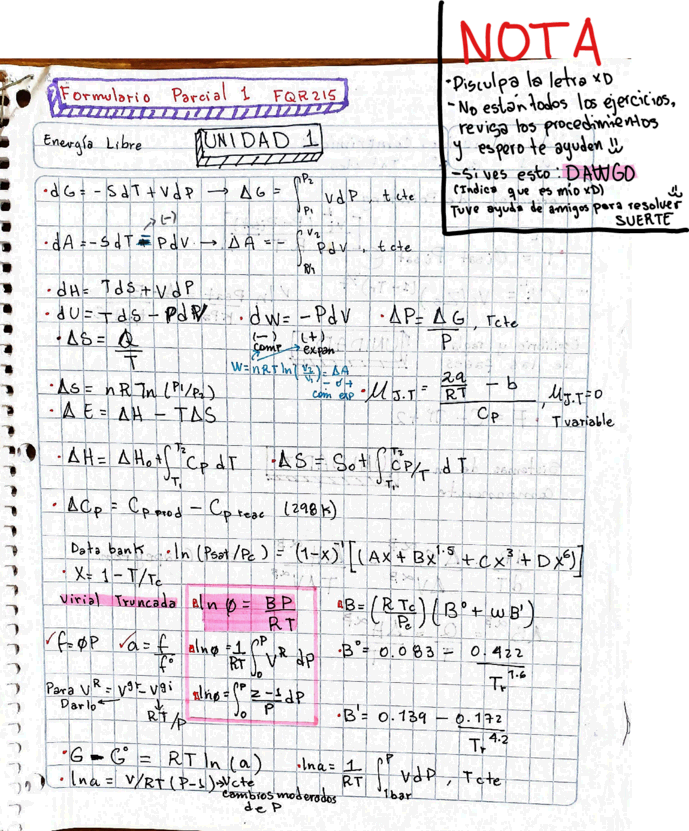 NOTA
• Disculpa la letra xD
- No están todos los ejercicios,
revisa los procedimientos
y espero te ayuden
- Si ves esto: DAWGO
(Indica que es mio xD)
Tuve ayuda de amigos para resolver
SUERTE
Formulario Parcial 1 FQR215
Energía Libre UNIDAD 1
• dG = -SdT + VdP → ΔG = ∫_{P1}^{P2} VdP, t cte
(-)
• dA = -SdT - PdV → ΔA = -∫_{V1}^{V2} PdV, t cte
• dH = TdS + VdP
• dU = TdS - PdV • dW = -PdV • ΔP = ΔG/P, Tcte
(-) comp (+) expan
• ΔS = Q/T
W = nRT ln(V2/V1) = ΔA
- o +
com exp
• Δs = nR ln(P1/P2) • μJ.T = (2a/RT - b)/Cp, μJ.T=0
T variable
• ΔE = ΔH - TΔS
• ΔH = ΔH0 + ∫_{T1}^{T2} Cp dT • ΔS = S0 + ∫_{T1}^{T2} CP/T dT
• ΔCp = Cp prod - Cp reac (298K)
Data bank • ln(Psat/Pc) = (1-x)^-1 [(Ax + Bx^1.5 + Cx^3 + Dx^6)]
• X = 1 - T/Tc
Virial Truncada ln Ø = BP/RT B = (RTc/Pc)(B° + ωB')
✓f = ØP ✓a = f/f° lnø = 1/RT ∫_0^P V^R dP • B° = 0.083 - 0.422/Tr^1.6
Para V^R = V^gr - V^gi lnø = ∫_0^P z-1/P dP
Darlo RT/P
• B' = 0.139 - 0.172/Tr^4.2
• G - G° = RT ln(a) • lna = 1/RT ∫_{1bar}^P VdP, Tcte
• lna = V/RT (P-1) → Vcte
cambios moderados
de P